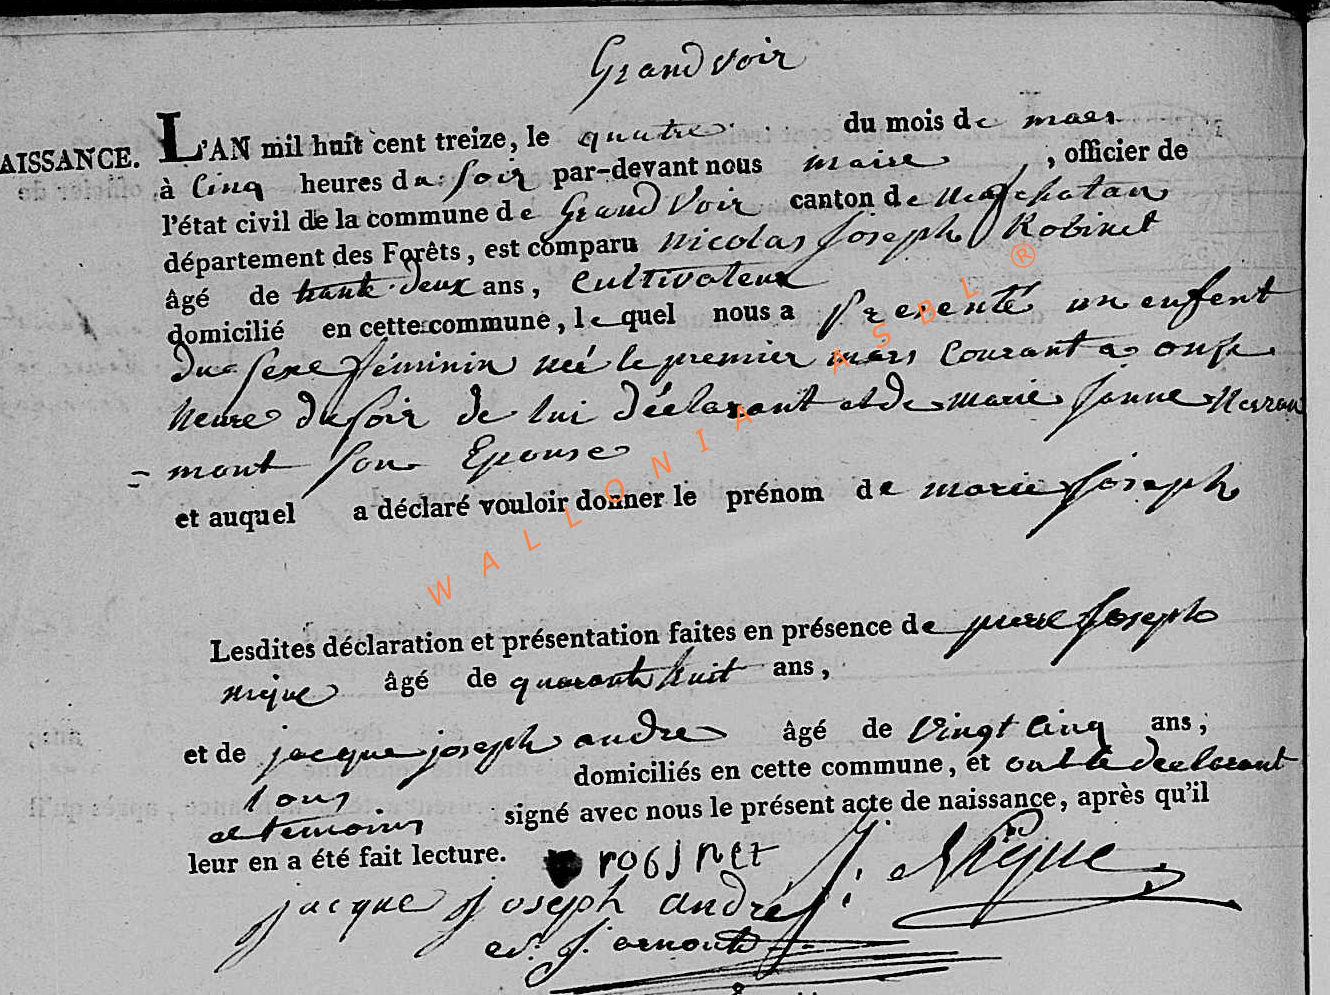 Grandvoir
AISSANCE. L'AN mil huit cent treize, le quatre du mois de mars
à Cinq heures du soir par-devant nous maire, officier de
l'état civil de la commune de Grand Voir canton de neufchatau
département des Forêts, est comparu nicolas Joseph Robinet
âgé de trante deux ans, Cultivateur
domicilié en cette commune, lequel nous a presenté un enfent
du sexe féminin né le premier mars Courant a onse
heure du soir de lui déclarant et de marie janne
mont son Epouse
et auquel a déclaré vouloir donner le prénom de marie joseph
Lesdites déclaration et présentation faites en présence de pierre Joseph
nique âgé de quarante huit ans,
et de jacque joseph andre âgé de vingt Cinq ans,
tous domiciliés en cette commune, et ont le declarant
et temoins signé avec nous le présent acte de naissance, après qu'il
leur en a été fait lecture. robjnet J: Nique
jacque joseph andré
J. arnould
WALLONIA ASBL ®